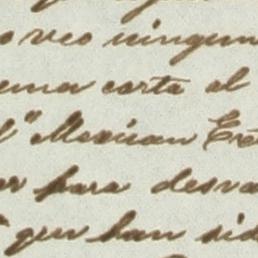 o veo ningun
una carta al
l "Mexican Era
or para desva
que han sid